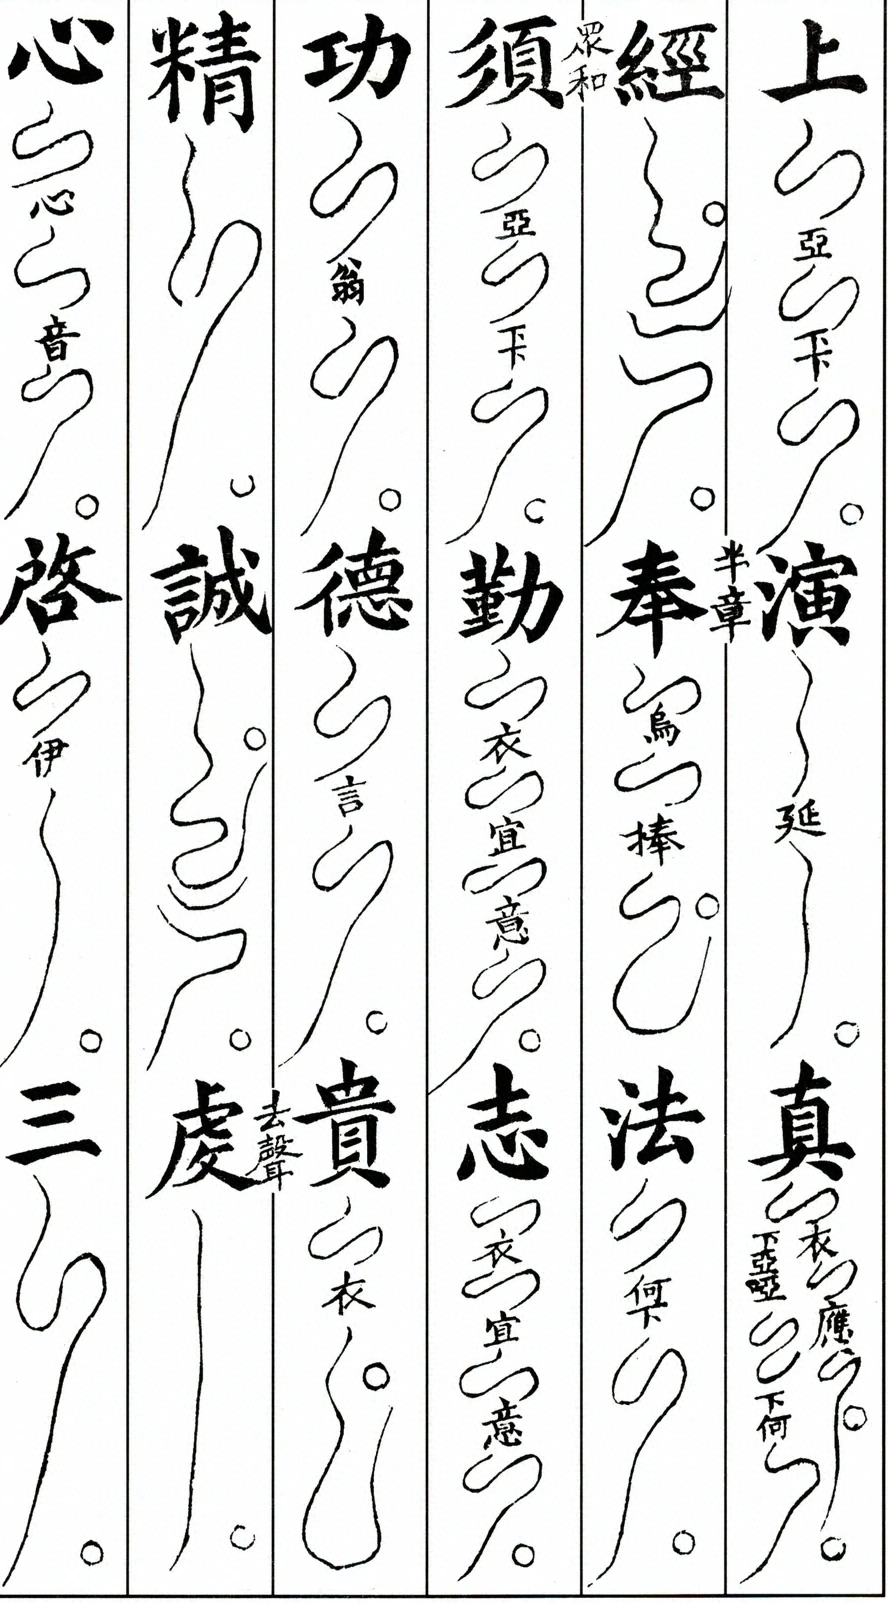 上 亞 演 延 真 衣 應 下亞啞 下何
經 半章 奉 烏 捧 法 何下
眾和 須 亞 勤 衣 宜 意 志 衣 宜 意
功 翁 德 言 貴 衣
精 誠 虔 去聲
心 心 音 啓 伊 三